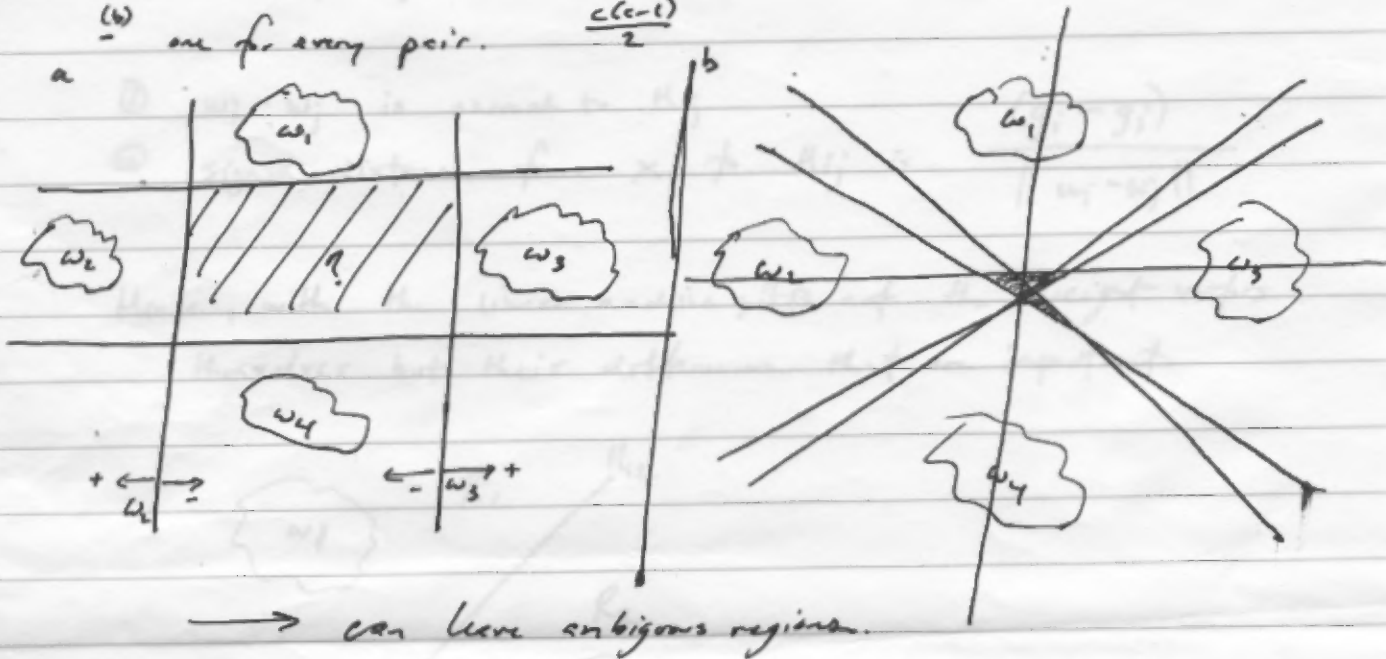 (b) one for every pair. c(c-1)/2
a
b
ω1
ω1
ω2
?
ω3
ω2
ω3
ω4
ω4
+ - - +
ω2 ω3
→ can leave ambigous regions.